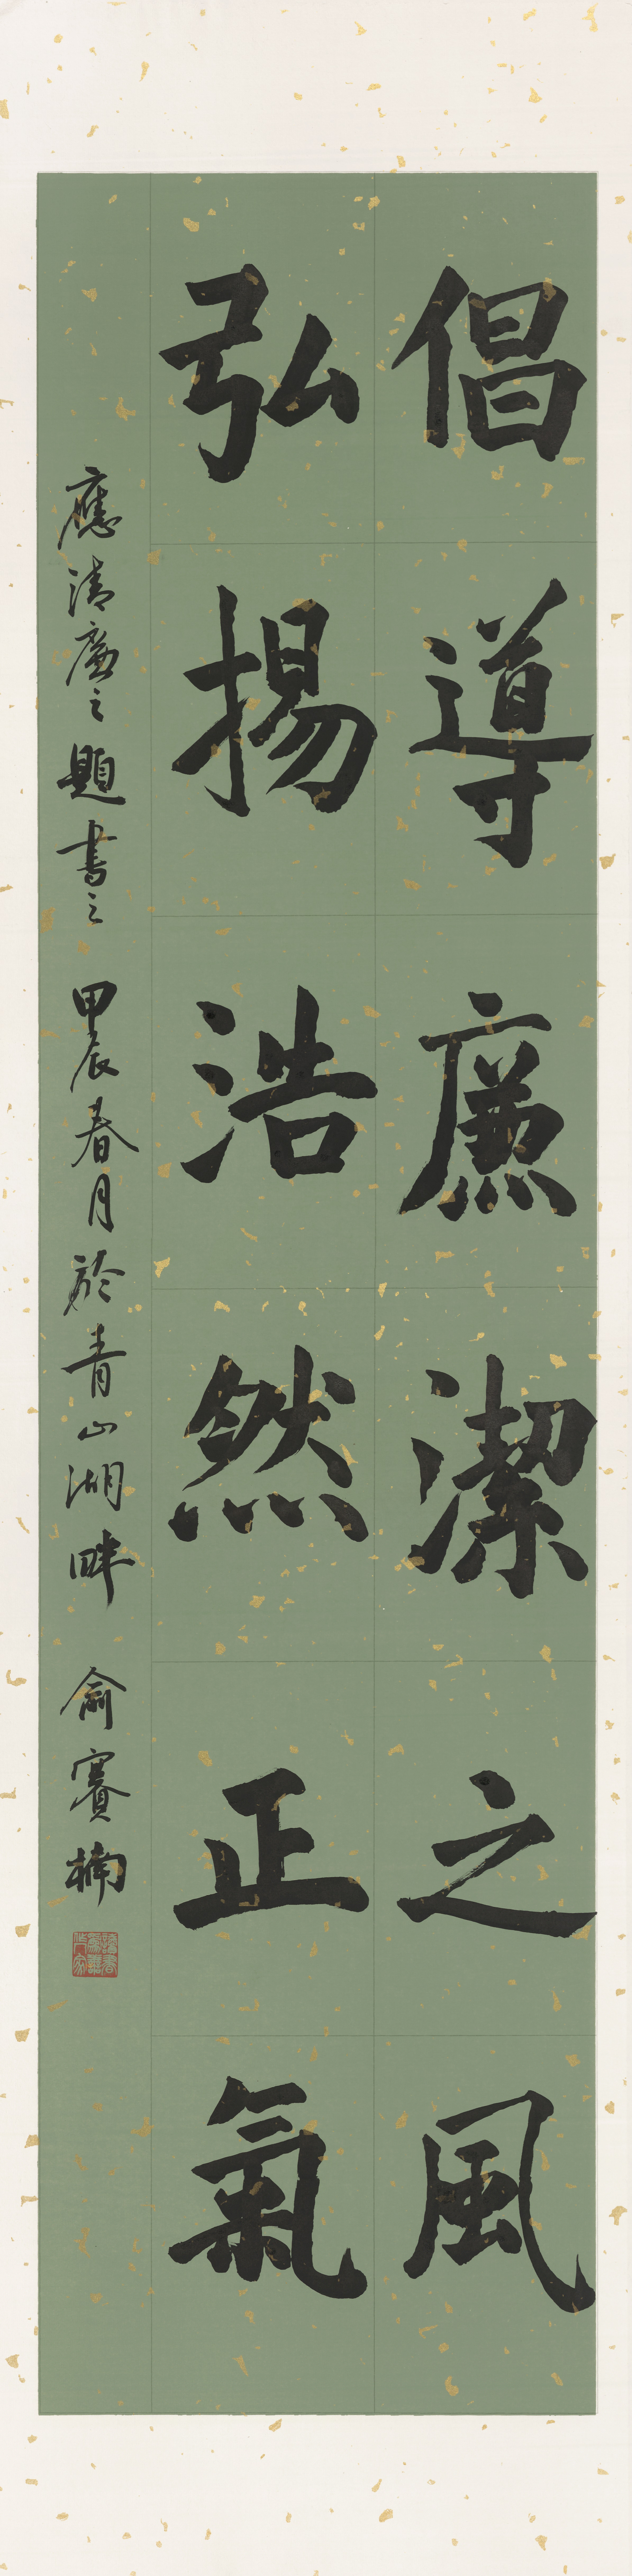 倡導廉潔之風
弘揚浩然正氣
應清廉之題書之 甲辰春月於青山湖畔 俞賽楠